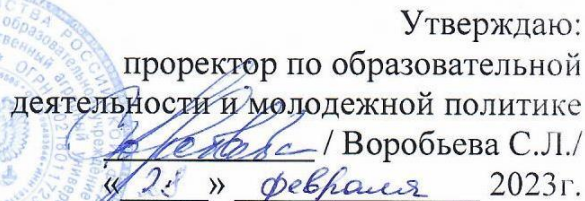 Утверждаю:
проректор по образовательной
деятельности и молодежной политике
/ Воробьева С.Л./
«28» февраля 2023г.